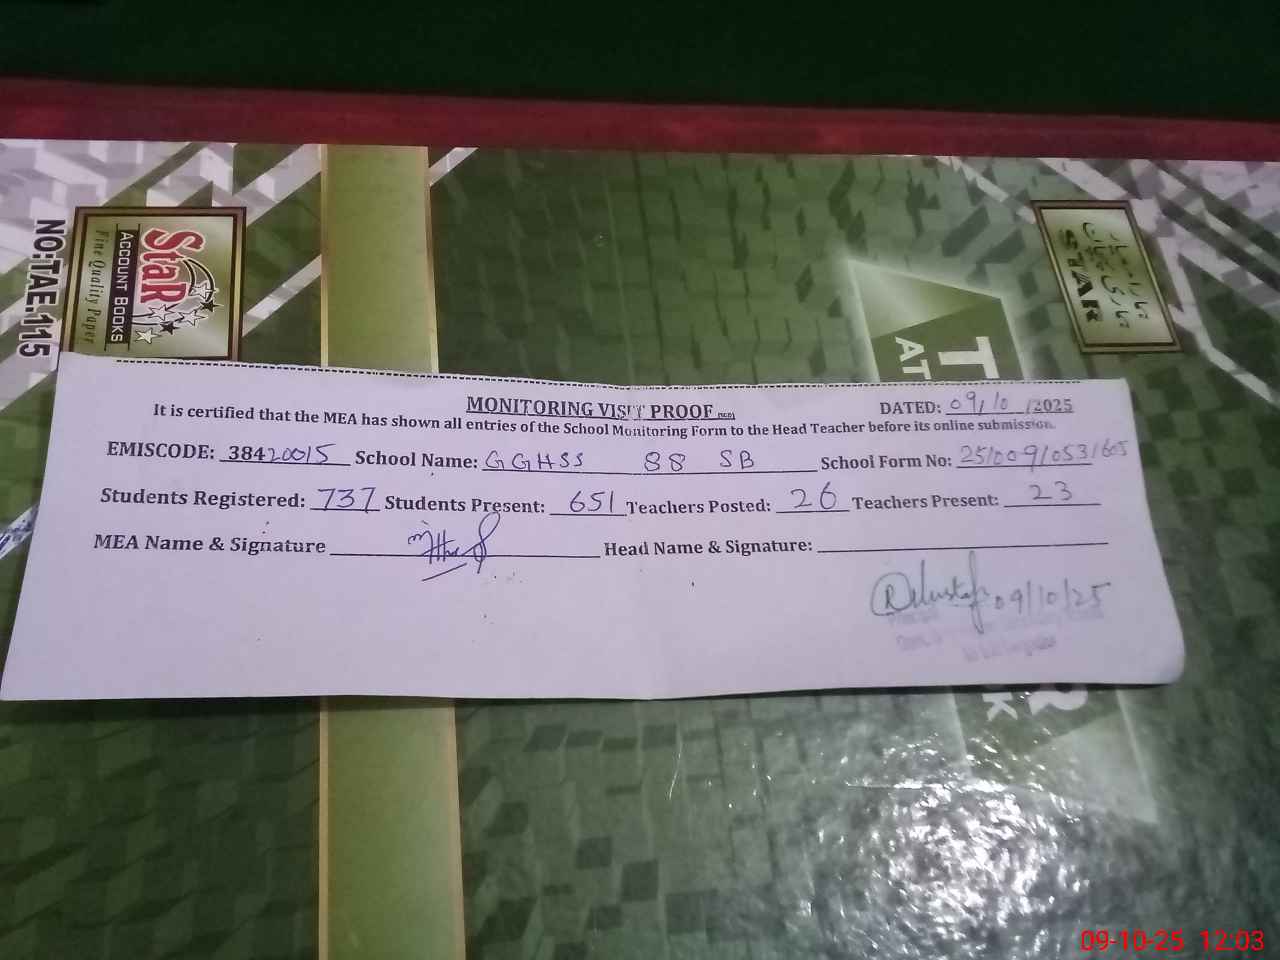 NO:TAE.115
StaR
ACCOUNT BOOKS
Fine Quality Paper
STAR
T
AT
MONITORING VISIT PROOF
DATED: 09/10 /2025
It is certified that the MEA has shown all entries of the School Monitoring Form to the Head Teacher before its online submission.
EMISCODE: 38420015 School Name: GGHSS 88 SB School Form No:
Students Registered: 737 Students Present: 651 Teachers Posted: 26 Teachers Present: 23
MEA Name & Signature Head Name & Signature:
09/10/25
Principal
R
K
09-10-25 12:03